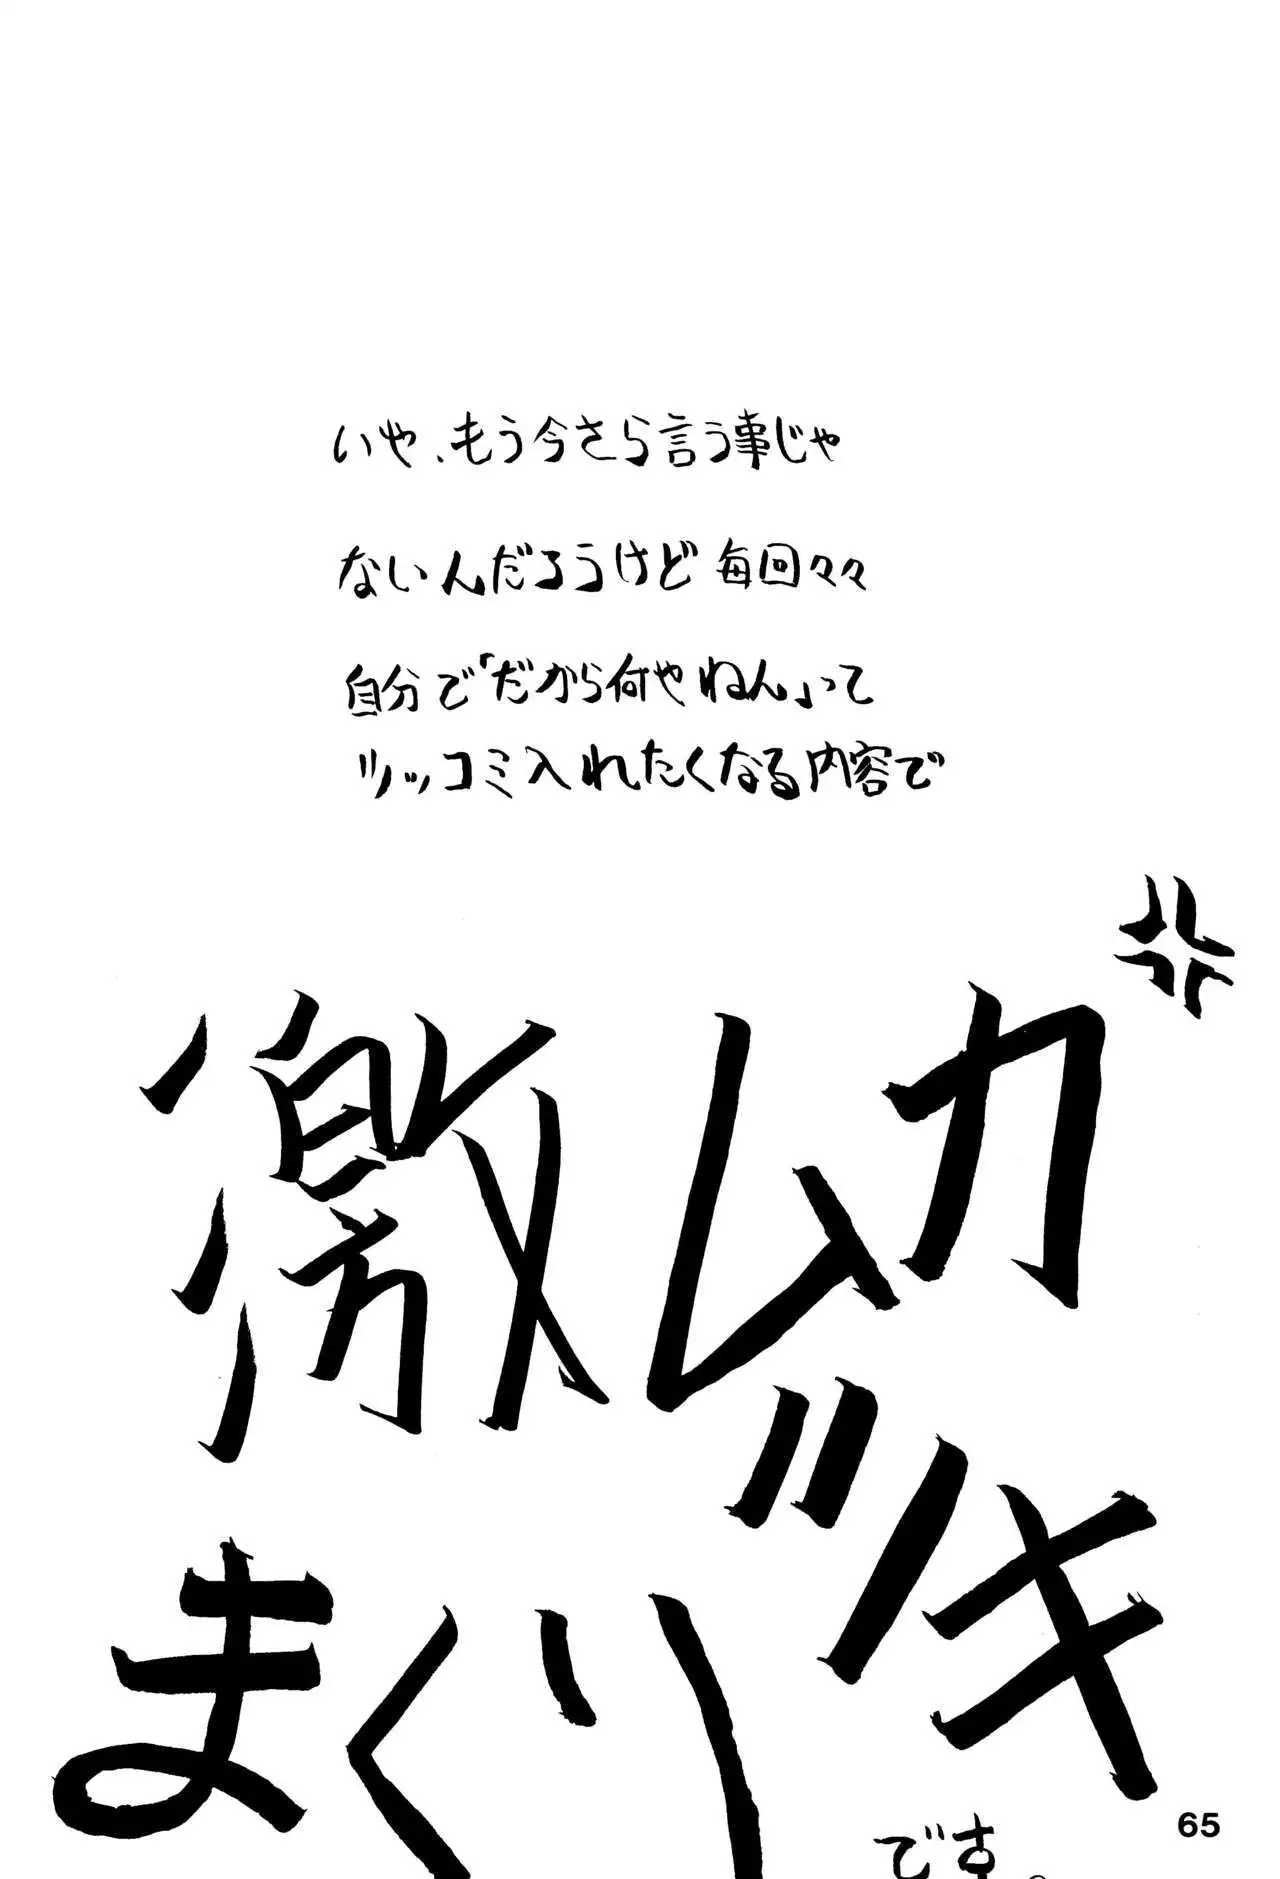 いや、もう今さら言う事じゃ
ないんだろうけど毎回々々
自分で「だから何やねん」って
ツッコミ入れたくなる内容で
激ムカ
ツキ
まくり
です。
65